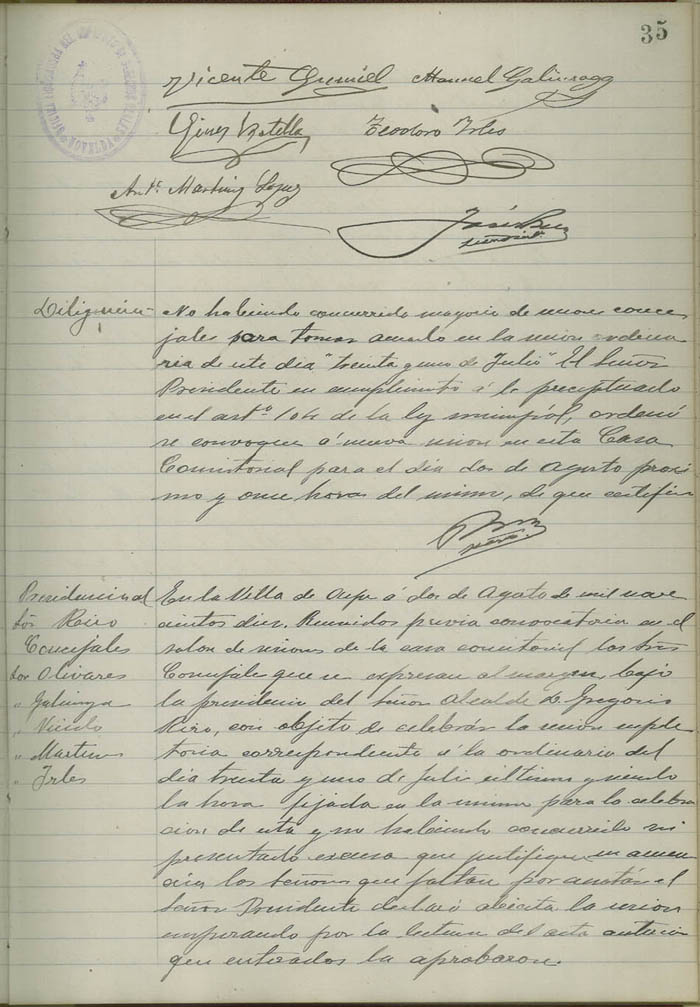 35
Vicente Gumiel Manuel Galinsoga
Gines Botella Teodoro Irles
Antº Martinez Lopez
José
Diligencia
No habiendo concurrido mayoria de señores conce
jales para tomar acuerdo en la sesion ordina
ria de este dia "treinta y uno de Julio" El Señor
Presidente en cumplimiento á lo preceptuado
en el artº 104 de la ley municipal, ordenó
se convoque á nueva sesion en esta Casa
Consistorial para el dia dos de Agosto proxi
mo y once horas del mismo, de que certifico
Presidencia al
Sor Riro
Concejales
Sor Olivares
" Galinsoga
" Martinez
" Irles
En la Villa de Aspe á dos de Agosto de mil nove
cientos diez. Reunidos previa convocatoria en el
salon de sesiones de la casa consistorial los Sres
Concejales que se expresan al margen, bajo
la presidencia del Señor Alcalde D. Gregorio
Riro, con objeto de celebrar la sesion suple
toria correspondiente á la ordinaria del
dia treinta y uno de Julio ultimo y siendo
la hora fijada en la misma para la celebra
cion de esta y no habiendo concurrido ni
presentado excusa que justifique su ausen
cia los Señores que faltan por anotar el
Señor Presidente declaró abierta la sesion
empezando por la lectura del acta anterior
que enterados la aprobaron.